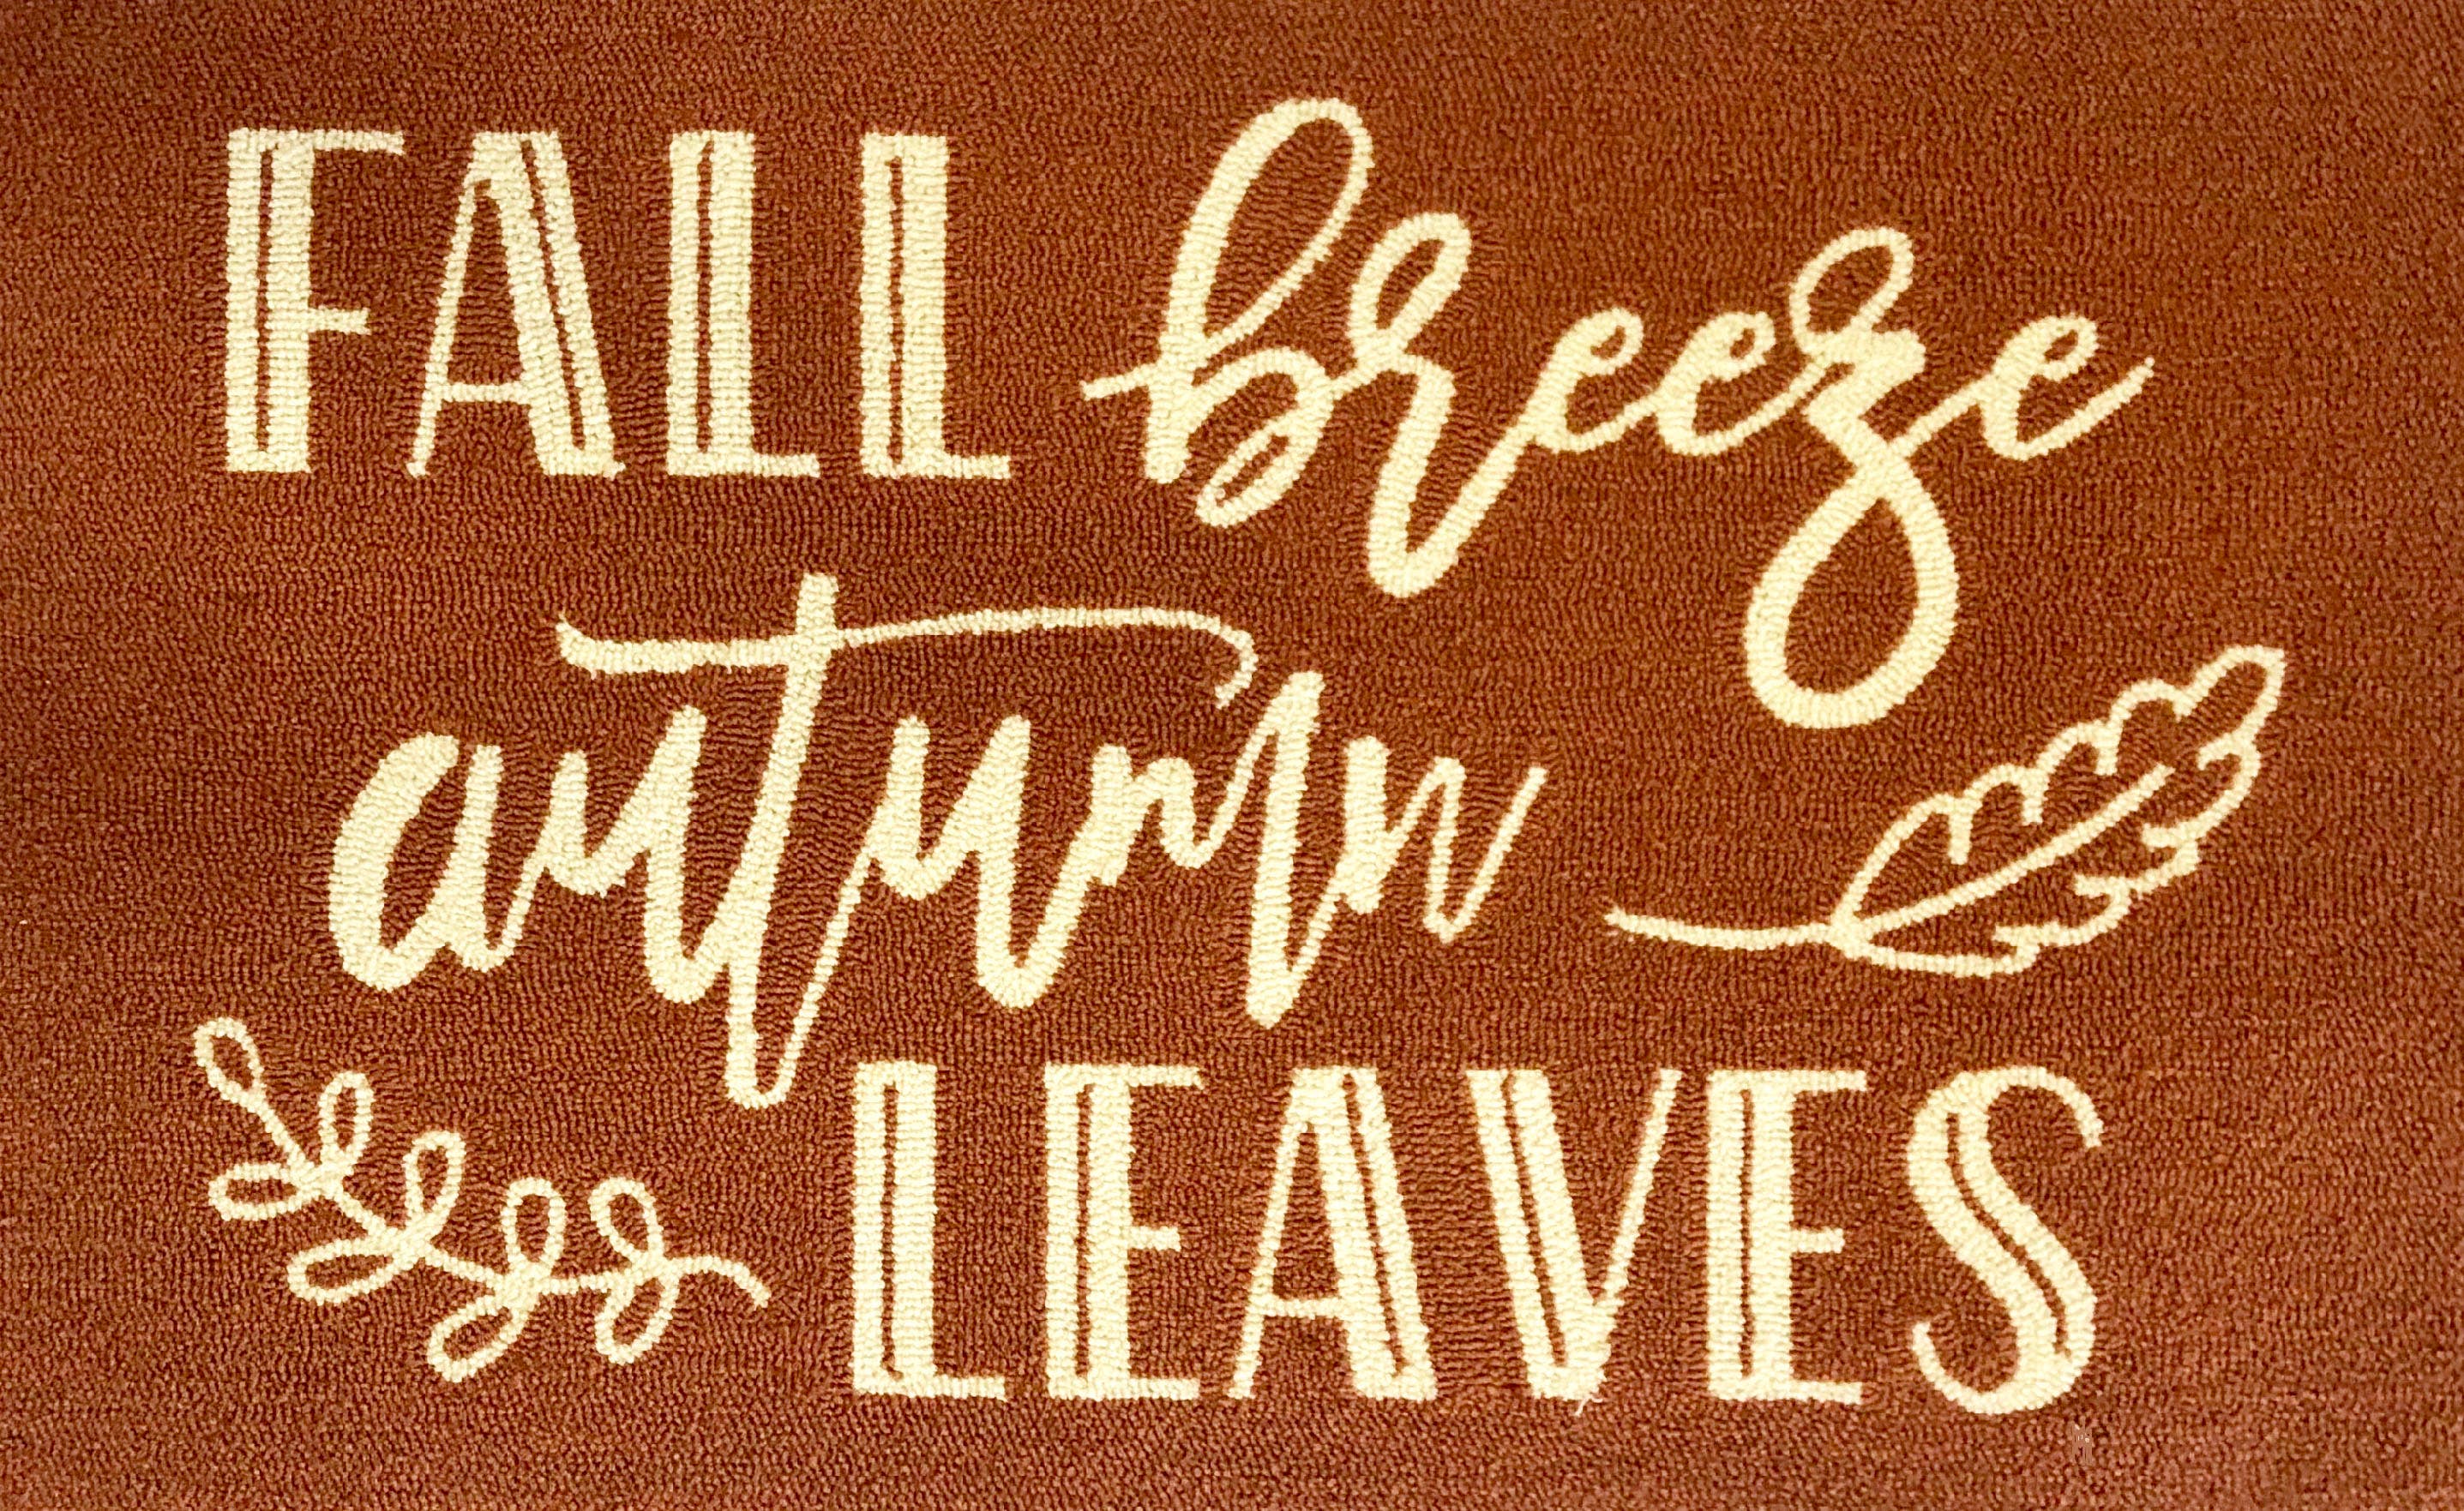 FALL breeze
autumn
LEAVES